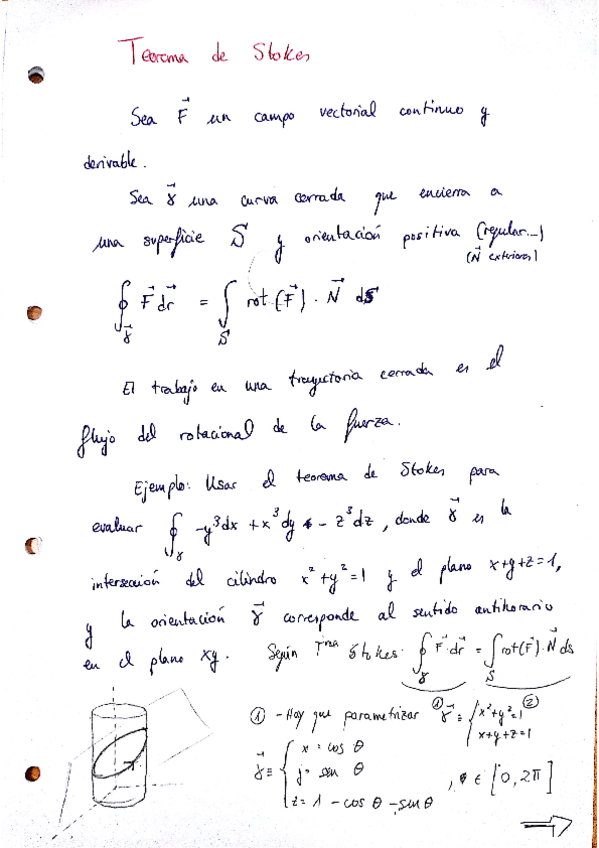 Teorema de Stokes
Sea F⃗ un campo vectorial continuo y
derivable.
Sea γ⃗ una curva cerrada que encierra a
una superficie S y orientación positiva (regular...)
(N⃗ exterior)
∮_γ⃗ F⃗ dr⃗ = ∫_S rot (F⃗) · N⃗ dS
El trabajo en una trayectoria cerrada es el
flujo del rotacional de la fuerza.
Ejemplo: Usar el teorema de Stokes para
evaluar ∮_γ -y³dx + x³dy - z³dz, donde γ⃗ es la
intersección del cilindro x²+y²=1 y el plano x+y+z=1,
y la orientación γ⃗ corresponde al sentido antihorario
en el plano xy. Según Tma Stokes: ∮_γ F⃗·dr⃗ = ∫_S rot(F)·N⃗ ds
① ②
① - Hay que parametrizar γ⃗ ≡ { x²+y²=1
x+y+z=1
γ⃗ ≡ { x = cos θ
y = sen θ , θ ∈ [0, 2π]
z = 1 - cos θ - sen θ